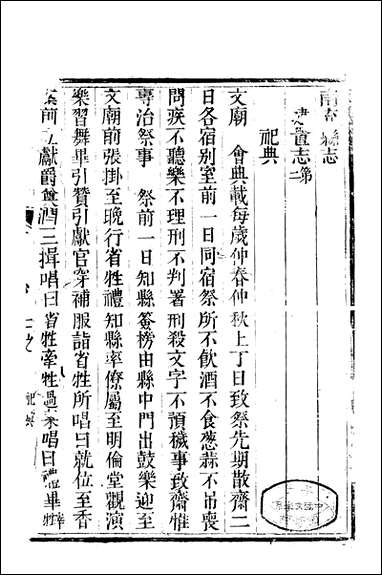 南 縣志
建置志第二
祀典
文廟 會典載每歲仲春仲秋上丁日致祭先期散齋二
日各宿别室前一日同宿祭所不飲酒不食葱蒜不吊喪
問疾不聽樂不理刑不判署刑殺文字不預穢事致齋惟
專治祭事 祭前一日知縣簽榜由縣中門出鼓樂迎至
文廟前張掛至晚行省牲禮知縣率僚屬至明倫堂觀演
樂習舞畢引贊引獻官穿補服詣省牲所唱曰就位至香
案前 獻爵奠酒三揖唱曰省牲牽牲過來唱曰禮畢
祀典